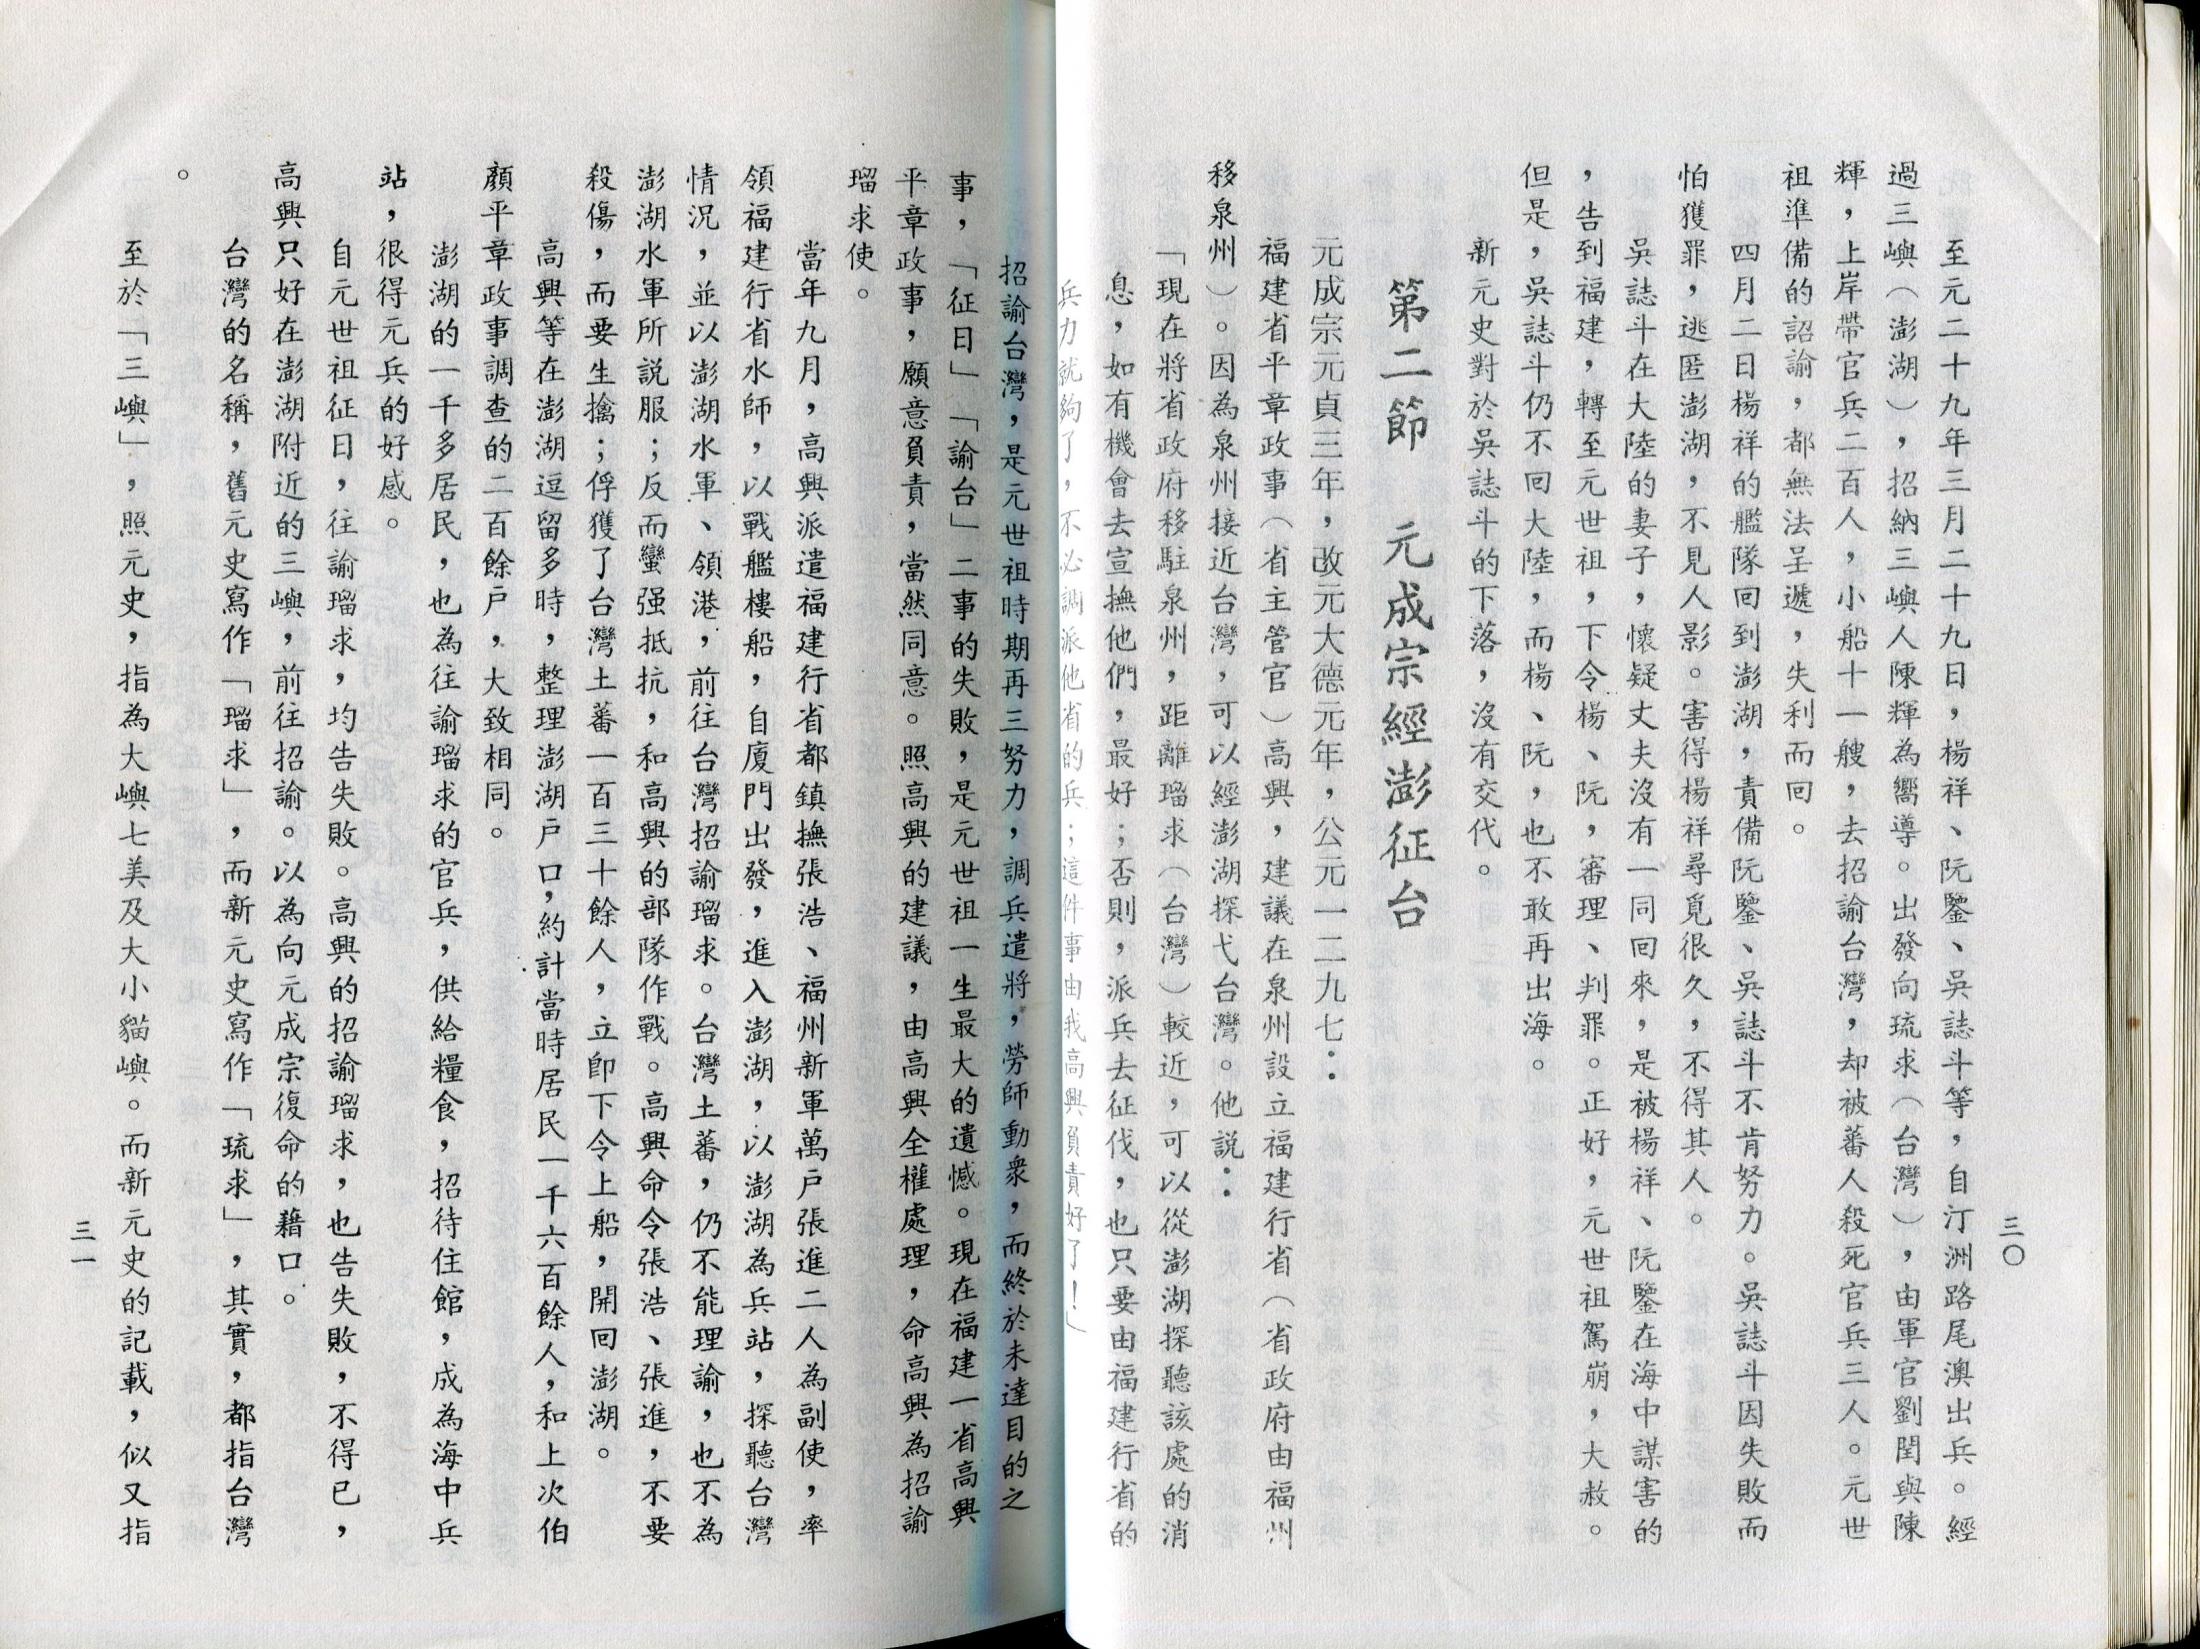 三〇
至元二十九年三月二十九日，楊祥、阮鑒、吳誌斗等，自汀洲路尾澳出兵。經
過三嶼（澎湖），招納三嶼人陳輝為嚮導。出發向琉求（台灣），由軍官劉閏與陳
輝，上岸帶官兵二百人，小船十一艘，去招諭台灣，却被蕃人殺死官兵三人。元世
祖準備的詔諭，都無法呈遞，失利而回。
四月二日楊祥的艦隊回到澎湖，責備阮鑒、吳誌斗不肯努力。吳誌斗因失敗而
怕獲罪，逃匿澎湖，不見人影。害得楊祥尋覓很久，不得其人。
吳誌斗在大陸的妻子，懷疑丈夫沒有一同回來，是被楊祥、阮鑒在海中謀害的
，告到福建，轉至元世祖，下令楊、阮，審理、判罪。正好，元世祖駕崩，大赦。
但是，吳誌斗仍不回大陸，而楊、阮，也不敢再出海。
新元史對於吳誌斗的下落，沒有交代。
第二節　元成宗經澎征台
元成宗元貞三年，改元大德元年，公元一二九七：
福建省平章政事（省主管官）高興，建議在泉州設立福建行省（省政府由福州
移泉州）。因為泉州接近台灣，可以經澎湖探弋台灣。他説：
「現在將省政府移駐泉州，距離瑠求（台灣）較近，可以從澎湖探聽該處的消
息，如有機會去宣撫他們，最好；否則，派兵去征伐，也只要由福建行省的
兵力就夠了，不必調派他省的兵；這件事由我高興負責好了！」
招諭台灣，是元世祖時期再三努力，調兵遣將，勞師動衆，而終於未達目的之
事，「征日」「諭台」二事的失敗，是元世祖一生最大的遺憾。現在福建一省高興
平章政事，願意負責，當然同意。照高興的建議，由高興全權處理，命高興為招諭
瑠求使。
當年九月，高興派遣福建行省都鎮撫張浩、福州新軍萬戶張進二人為副使，率
領福建行省水師，以戰艦樓船，自廈門出發，進入澎湖，以澎湖為兵站，探聽台灣
情況，並以澎湖水軍、領港，前往台灣招諭瑠求。台灣土蕃，仍不能理諭，也不為
澎湖水軍所説服；反而蠻强抵抗，和高興的部隊作戰。高興命令張浩、張進，不要
殺傷，而要生擒；俘獲了台灣土蕃一百三十餘人，立卽下令上船，開回澎湖。
高興等在澎湖逗留多時，整理澎湖戶口，約計當時居民一千六百餘人，和上次伯
顏平章政事調查的二百餘戶，大致相同。
澎湖的一千多居民，也為往諭瑠求的官兵，供給糧食，招待住館，成為海中兵
站，很得元兵的好感。
自元世祖征日，往諭瑠求，均告失敗。高興的招諭瑠求，也告失敗，不得已，
高興只好在澎湖附近的三嶼，前往招諭。以為向元成宗復命的藉口。
台灣的名稱，舊元史寫作「瑠求」，而新元史寫作「琉求」，其實，都指台灣
。
至於「三嶼」，照元史，指為大嶼七美及大小貓嶼。而新元史的記載，似又指
三一